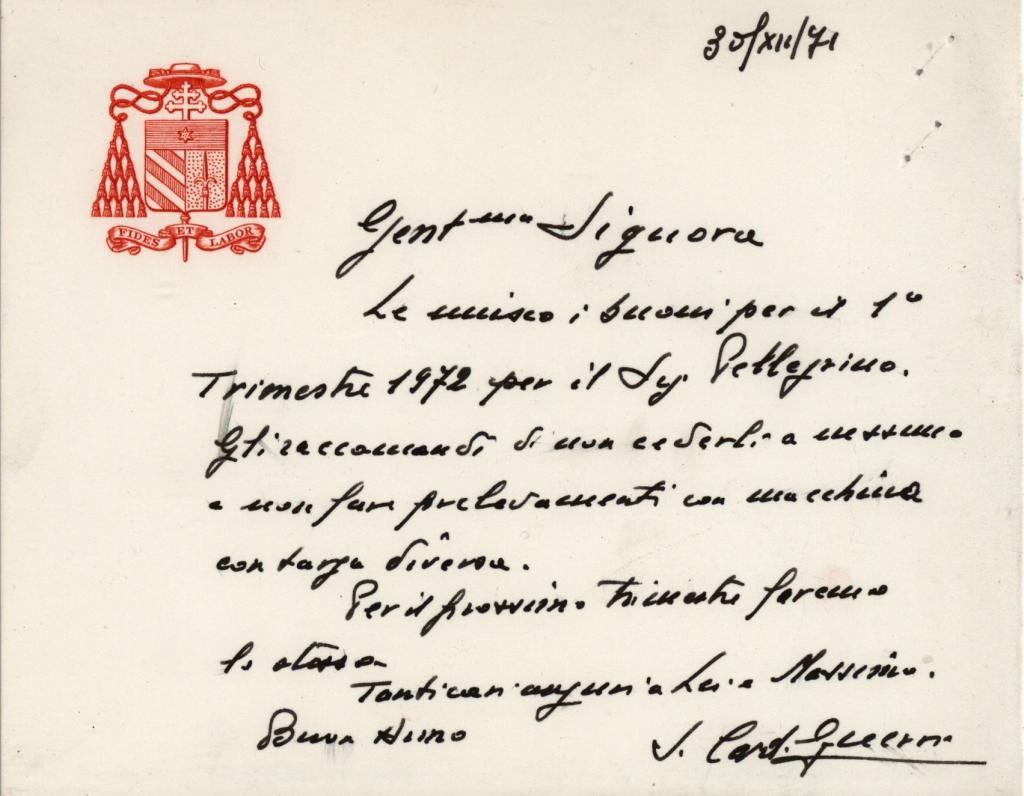 30/XII/71
FIDES ET LABOR
Gent.ma Signora
Le unisco i buoni per il 1°
Trimestre 1972 per il Sig. Pellegrino.
Gli raccomandi di non cederli a nessuno
e non fare prelevamenti con macchina
con targa diversa.
Per il prossimo trimestre faremo
lo stesso
Tanti cari auguri a Lei e Massimo.
Buon Anno
S. Card. Guerri